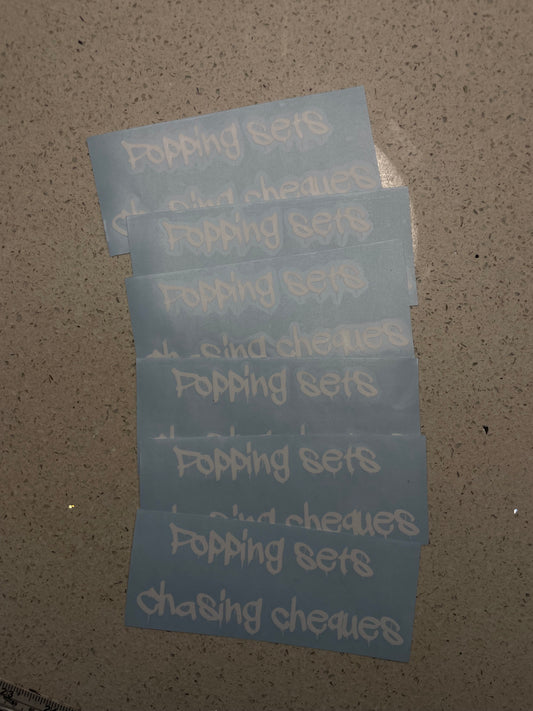 Popping sets
chasing cheques
Popping sets
Popping sets
chasing cheques
Popping sets
Popping sets
chasing cheques
Popping sets
chasing cheques